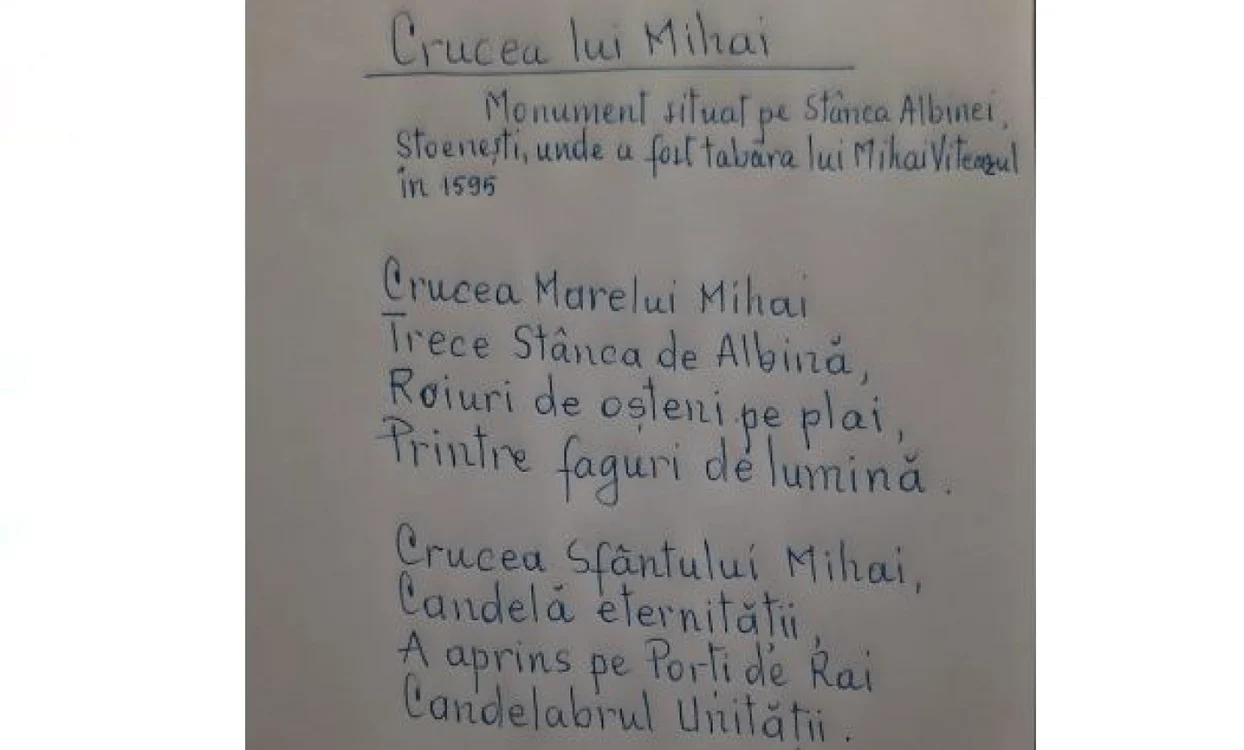 Crucea lui Mihai
Monument situat pe Stânca Albinei,
Stoenești, unde a fost tabăra lui Mihai Viteazul
în 1595
Crucea Marelui Mihai
Trece Stânca de Albină,
Roiuri de oșteni pe plai,
Printre faguri de lumină.
Crucea Sfântului Mihai,
Candelă eternității,
A aprins pe Porți de Rai
Candelabrul Unității.